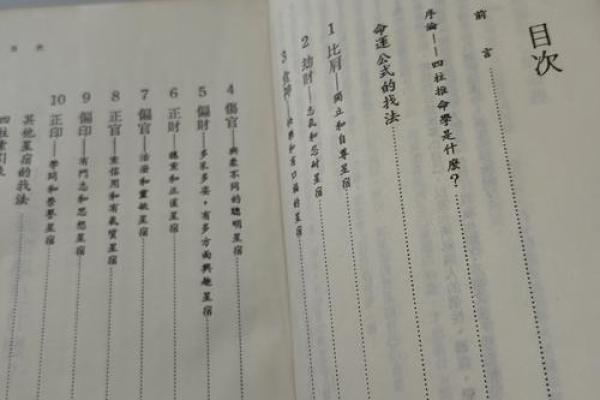 目次
前言
序論——四柱推命學是什麼？
命運公式的找法
1 比肩——獨立和自尊星宿
2 劫財——志氣和忍耐星宿
3 食神——
4 傷官——與衆不同的聰明星宿
5 偏財——多采多姿，有多方面興趣星宿
6 正財——穩重和正直星宿
7 偏官——活潑和靈敏星宿
8 正官——重信用和有氣質星宿
9 偏印——有鬥志和思想星宿
10 正印——學問和榮譽星宿
其他星宿的找法
四柱索引表
目次